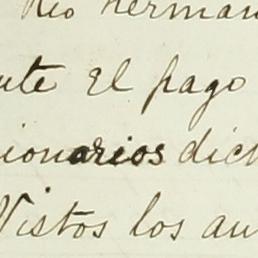 Rio herman
ute el pago
ionarios dich
Vistos los au